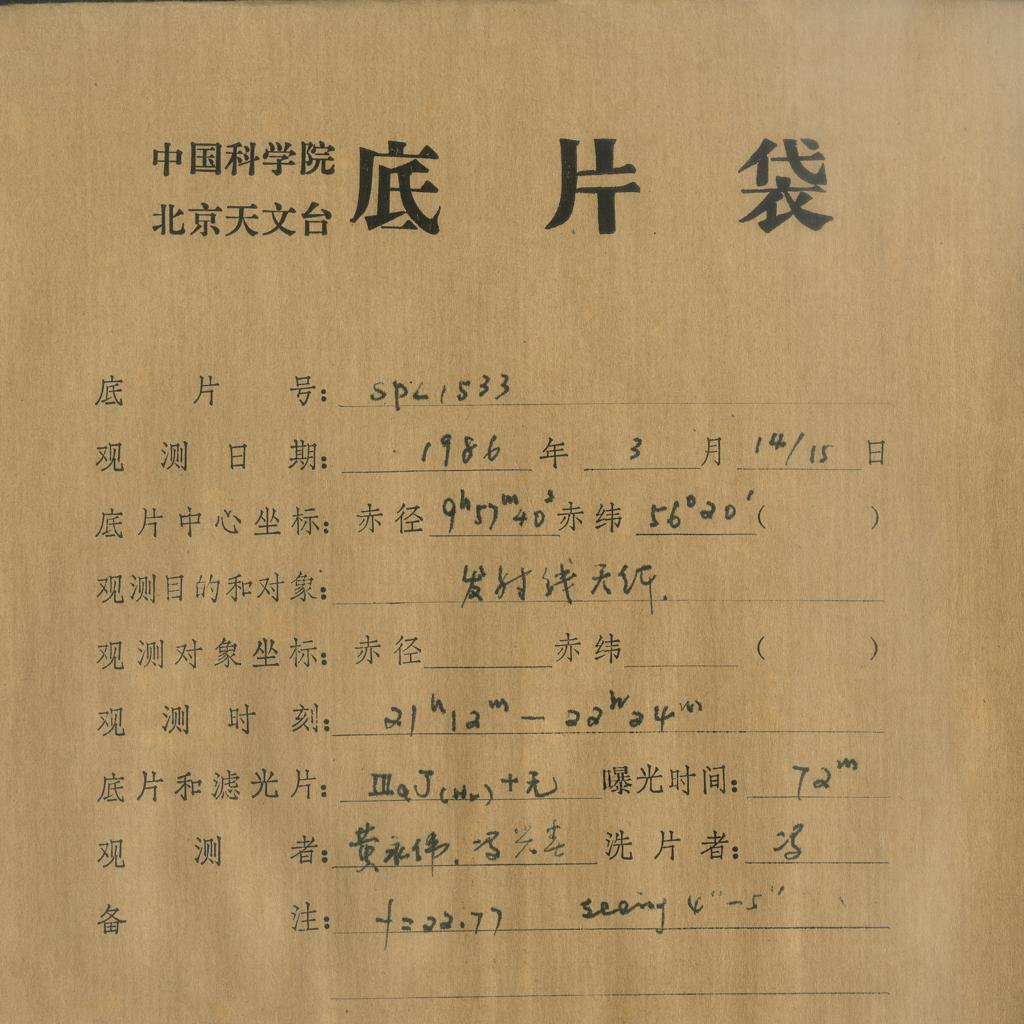 中国科学院
北京天文台 底片袋
底片号: SPL1533
观测日期: 1986年 3月 14/15日
底片中心坐标: 赤径 9ʰ57ᵐ40ˢ 赤纬 56°20′( )
观测目的和对象: 发射线天体.
观测对象坐标: 赤径 赤纬 ( )
观测时刻: 21ʰ12ᵐ — 22ʰ24ᵐ
底片和滤光片: ⅢaJ(H₂)+无 曝光时间: 72ᵐ
观测者: 黄永伟.冯兴春 洗片者: 冯
备注: f=22.77 seeing 4″-5″